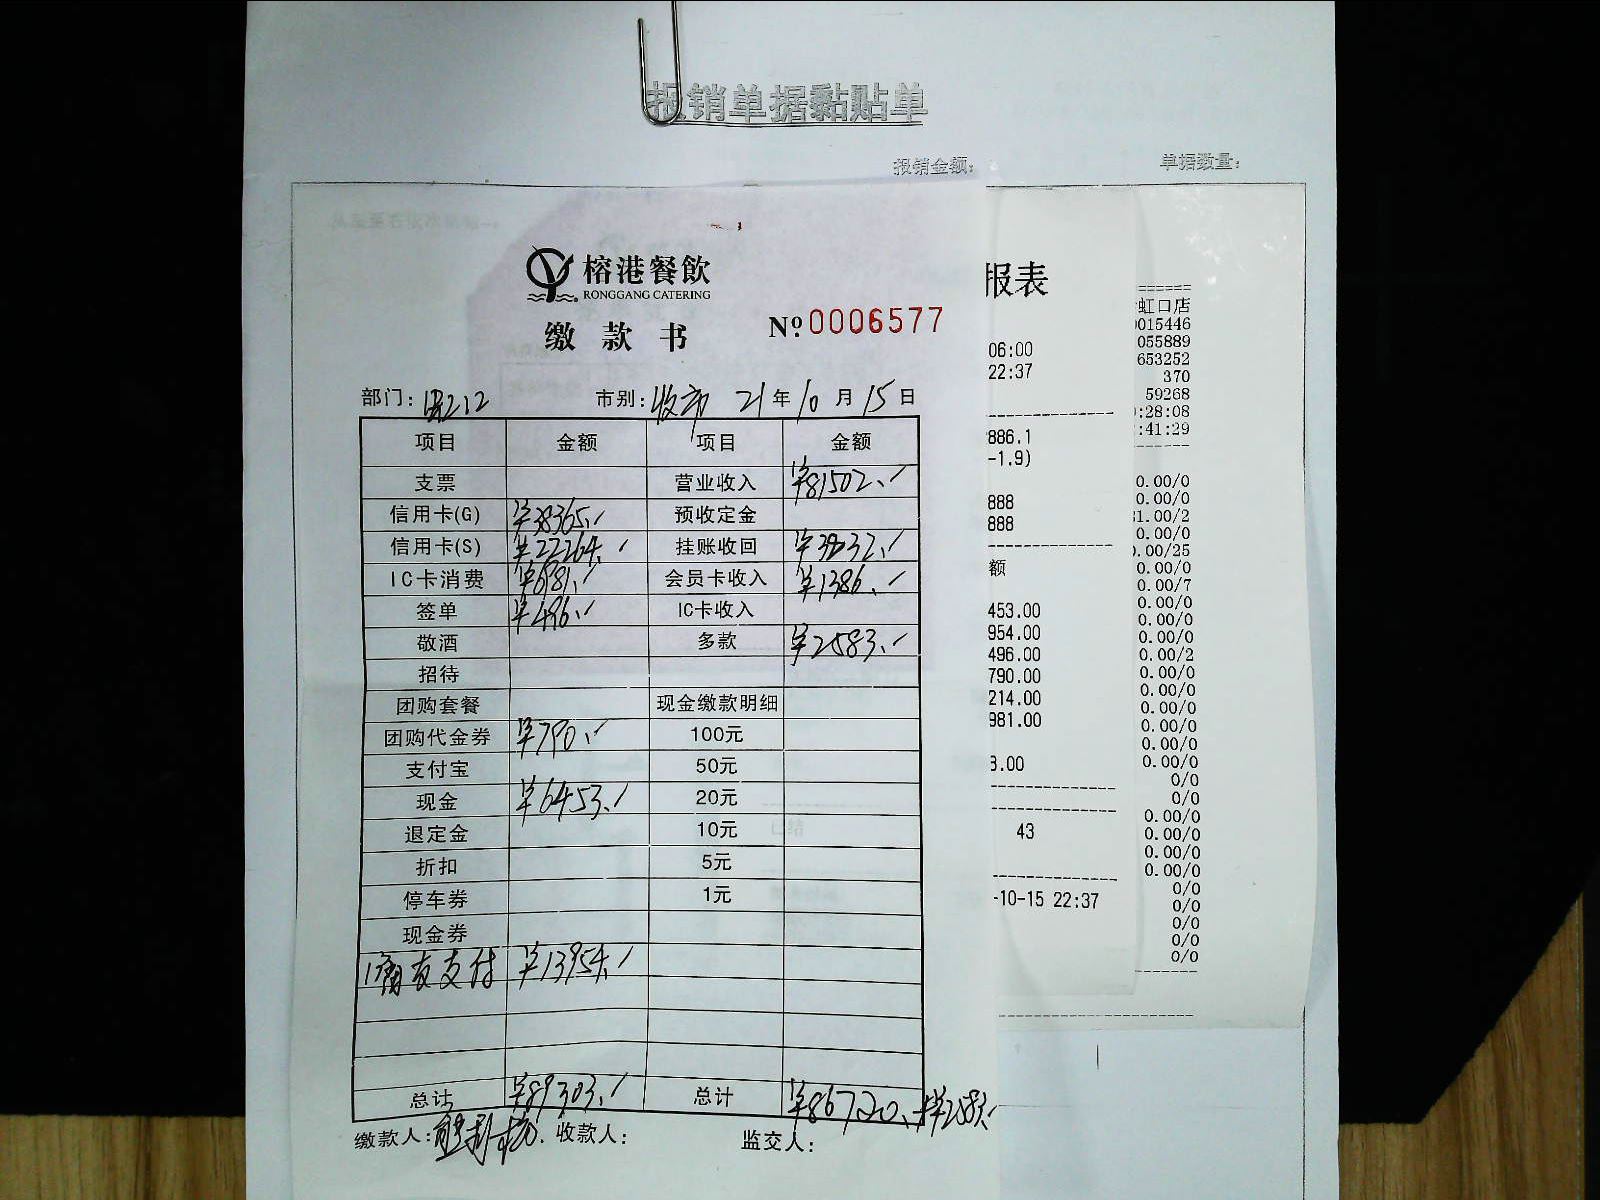 报销单据黏贴单
报销金额： 单据数量：
榕港餐飲
RONGGANG CATERING
缴款书 Nº.0006577
部门： 市别：收市 21年10月15日
项目 金额 项目 金额
支票 营业收入 ¥81502.
信用卡(G) ¥38365. 预收定金
信用卡(S) ¥22264. 挂账收回 ¥3832.
IC卡消费 ¥6981. 会员卡收入 ¥1386.
签单 ¥496. IC卡收入
敬酒 多款 ¥2583.
招待
团购套餐 现金缴款明细
团购代金券 ¥790. 100元
支付宝 50元
现金 ¥6453. 20元
退定金 10元
折扣 5元
停车券 1元
现金券
支付 ¥13954.
总计 ¥89303. 总计 ¥86720.+¥2583.
缴款人： 收款人： 监交人：
报表
06:00
22:37
886.1
-1.9)
888
888
额
453.00
954.00
496.00
790.00
214.00
981.00
3.00
43
-10-15 22:37
虹口店
015446
055889
653252
370
59268
:28:08
:41:29
0.00/0
0.00/0
1.00/2
0.00/0
.00/25
0.00/0
0.00/7
0.00/0
0.00/0
0.00/0
0.00/2
0.00/0
0.00/0
0.00/0
0.00/0
0.00/0
0.00/0
0/0
0/0
0.00/0
0.00/0
0.00/0
0.00/0
0/0
0/0
0/0
0/0
0/0